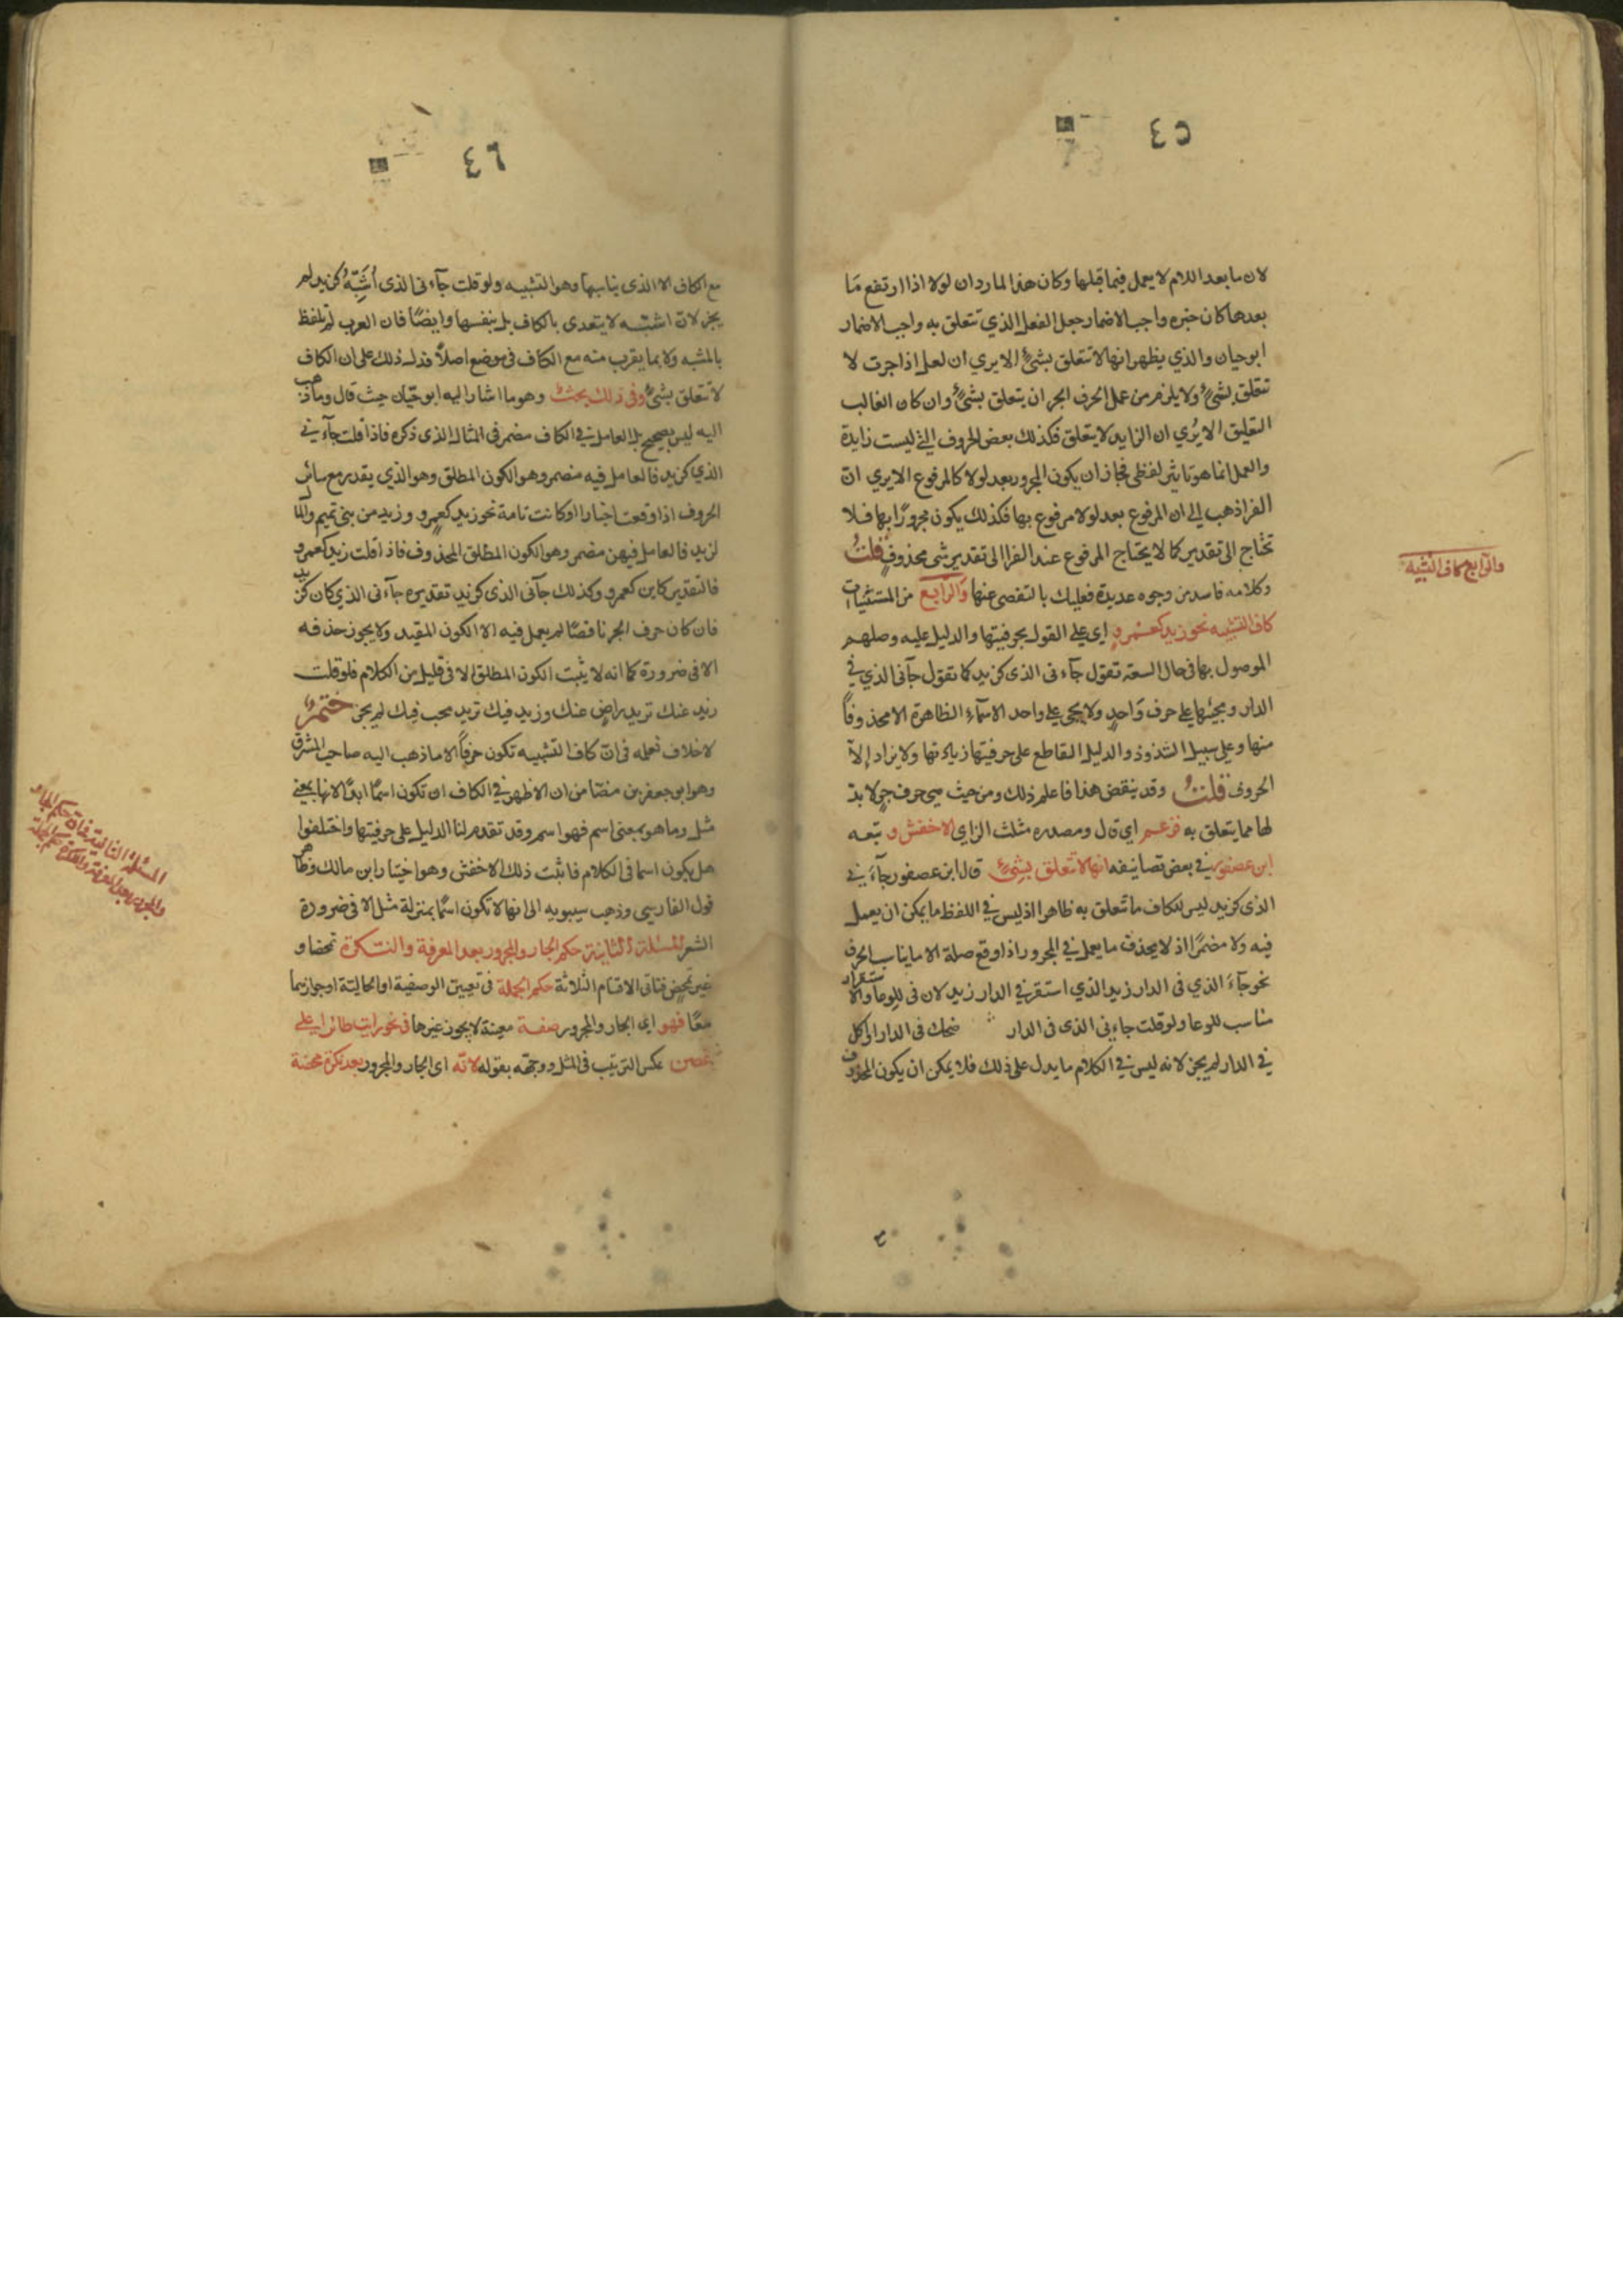 ٤٥
لان ما بعد اللام لا يعمل فيما قبلها وكان هذا لما راد ان لولا اذا ارتفع مَا
بعدها كان خبره واجب الاضمار جعل الفعل الذي تتعلق به واجب الاضمار
ابو حيان والذي يظهر انها لا تتعلق بشئ الا يري ان لعل اذا جرت لا
تتعلق بشئ ولا يلزم من عمل الحرف الجر ان يتعلق بشئ وان كان الغالب
التعليق الا يُري ان الزايد لا يتعلق فكذلك بعض الحروف التي ليست زايدة
والعمل انما هو تاثير لفظي فجاز ان يكون المجرور بعد لولا كالمرفوع الا يري انّ
الفرا ذهب الى ان المرفوع بعد لولا مرفوع بها فكذلك يكون مجرورًا بها فلا
تحتاج الى تقدير كما لا يحتاج المرفوع عند الفرا الى تقدير شئ محذوف قلتُ
وكلامه فاسد من وجوه عديدة فعليك بالتقصى عنها والرّابع من المستثنيات
كاف التشبيه نحو زيد كعمرو اي على القول بحرفيتها والدليل عليه وصلهم
الموصول بها في حال السعة تقول جآء نى الذى كزيد كما تقول جآنى الذي في
الدار ومجيئها على حرف وَاحدٍ ولا يجى على واحد الاسمآء الظاهرة الا محذوفاً
منها وعلى سبيل الشذوذ والدليل القاطع على حرفيتها زيادتها ولا يزاد إلا
الحروف قلتُ وقد ينقض هذا فاعلم ذلك ومن حيث هي حرف جر لا بدّ
لها مما يتعلق به فزعم اي قال ومصدره مثلث الزاي الاخفش و تبعه
ابن عصفور في بعض تصانيفه انها لا تتعلق بشئٍ قال ابن عصفور جآءَ ني
الذى كزيد ليس للكاف ما تتعلق به ظاهر اذ ليس في اللفظ ما يمكن ان يعمل
فيه ولا مضمرًا اذ لا يحذف ما يعمل في المجرور اذا وقع صلة الا ما يناسب الحرف
نحو جآءَ الذي فى الدار زيد الذي استقر في الدار زيد لان فى للوعا والاستقرار
مناسب للوعا ولو قلت جاءني الذى فى الدار ضحك فى الدار او اكل
في الدار لم يجز لانه ليس في الكلام ما يدل على ذلك فلا يمكن ان يكون المحذوف
والرّابع كاف التشبيه
٤٦
مع الكاف الا الذى يناسبها وهو التشبيه ولو قلت جآء نى الذى أشَبِّهُ كزيد لم
يجز لانّ اشبّه لا يتعدى بالكاف بل بنفسها وايضًا فان العرب لم تلفظ
بالمشبه ولا بما يقرب منه مع الكاف فى موضع اصلاً فدل ذلك على ان الكاف
لا تتعلق بشئ وفى ذلك بحثٌ وهو ما اشار اليه ابو حيّان حيث قال وما ذهب
اليه ليس بصحيح بل العامل في الكاف مضمر فى المثال الذى ذكره فاذا قلت جآءني
الذي كزيد فالعامل فيه مضمر وهو الكون المطلق وهو الذي يقدر مع سائر
الحروف اذا وقعت اخبارا او كانت تامة نحو زيد كعمرو وزيد من بنى تميم والمال
لزيد فالعامل فيهن مضمر وهو الكون المطلق المحذوف فاذا قلت زيد كعمرو
فالتقدير كاين كعمرو وكذلك جآنى الذى كزيد تقديره جآءنى الذي كان كزيد
فان كان حرف الجر ناقصًا لم يعمل فيه الا الكون المقيد ولا يجوز حذفه
الا فى ضرورة كما انه لا يثبت الكون المطلق الا فى قليل من الكلام فلو قلت
زيد عنك تريد راضٍ عنك وزيد فيك تريد محب فيك لم يجز
لا خلاف نعلمه فى انّ كاف التشبيه تكون حرفاً الا ما ذهب اليه صاحب المشرق
وهو ابو جعفر بن مضا من ان الاظهر في الكاف ان تكون اسمًا ابدًا لانها بمعنى
مثل وما هو بمعنى اسم فهو اسم وقد تقدم لنا الدليل على حرفيتها واختلفوا
هل يكون اسما فى الكلام فاثبت ذلك الاخفش وهو اختيار ابن مالك وظاهر
قول الفارسي وذهب سيبويه الى انها لا تكون اسمًا بمنزلة مثل الا فى ضرورة
الشعر المسئلة الثانية حكم الجار والمجرور بعد المعرفة والنكرة تمحضا و
غير تمحض فتاتى الاقسام الثلاثة حكم الجملة فى تعيين الوصفية او الحالية او جوازهما
معًا فهو اى الجار والمجرور صفة معينة لا يجوز غيرها فى نحو رايت طائرا على
غصن عكس الترتيب فى المثل ووجهه بقوله لانّه اى الجار والمجرور بعد نكرة محضة
المسئلة الثانية حكم الجار
والمجرور بعد المعرفة والنكرة حكم الجملة